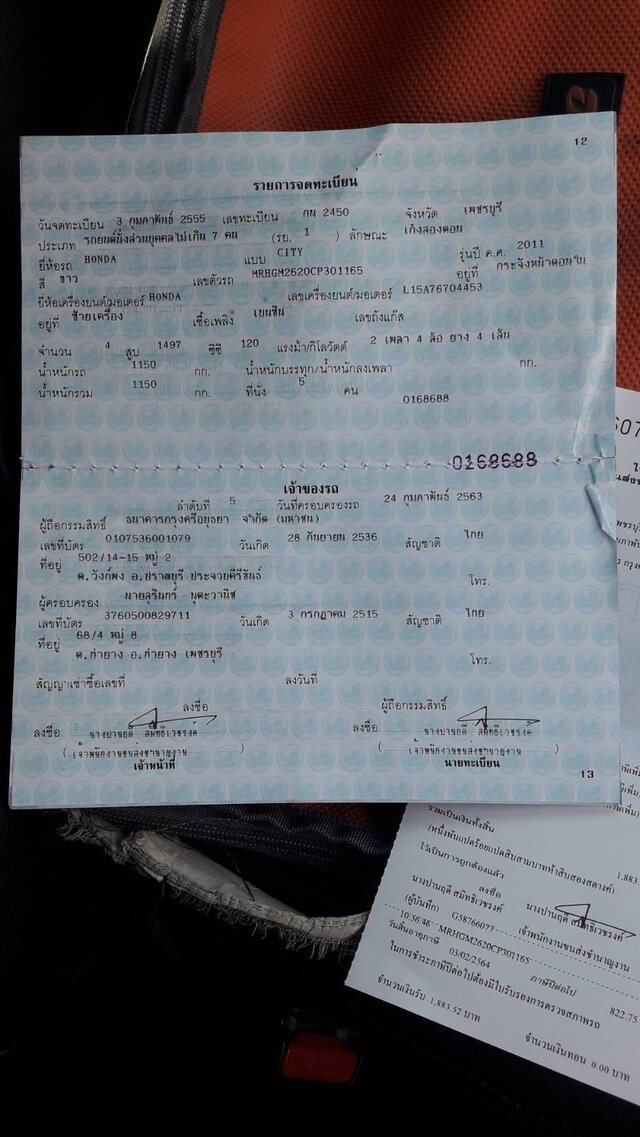 12
รายการจดทะเบียน
วันจดทะเบียน 3 กุมภาพันธ์ 2555 เลขทะเบียน กน 2450 จังหวัด เพชรบุรี
ประเภท รถยนต์นั่งส่วนบุคคลไม่เกิน 7 คน (รย. 1 ) ลักษณะ เก๋งสองตอน
ยี่ห้อรถ HONDA แบบ CITY รุ่นปี ค.ศ. 2011
สี ขาว เลขตัวรถ MRHGM2620CP301165 อยู่ที่ กระจังหน้าตอนใน
ยี่ห้อเครื่องยนต์/มอเตอร์ HONDA เลขเครื่องยนต์/มอเตอร์ L15A76704453
อยู่ที่ ซ้ายเครื่อง เชื้อเพลิง เบนซิน เลขถังแก๊ส
จำนวน 4 สูบ 1497 ซีซี 120 แรงม้า/กิโลวัตต์ 2 เพลา 4 ล้อ ยาง 4 เส้น
น้ำหนักรถ 1150 กก. น้ำหนักบรรทุก/น้ำหนักลงเพลา กก.
น้ำหนักรวม 1150 กก. ที่นั่ง 5 คน
0168688
0168688
เจ้าของรถ
ลำดับที่ 5 วันที่ครอบครองรถ 24 กุมภาพันธ์ 2563
ผู้ถือกรรมสิทธิ์ ธนาคารกรุงศรีอยุธยา จำกัด (มหาชน)
เลขที่บัตร 0107536001079 วันเกิด 28 กันยายน 2536 สัญชาติ ไทย
ที่อยู่ 502/14-15 หมู่ 2
ต.วังก์พง อ.ปราณบุรี ประจวบคีรีขันธ์ โทร.
ผู้ครอบครอง นายสุรินทร์
เลขที่บัตร 3760500829711 วันเกิด 3 กรกฎาคม 2515 สัญชาติ ไทย
ที่อยู่ 68/4 หมู่ 8
ต.ท่ายาง อ.ท่ายาง เพชรบุรี โทร.
สัญญาเช่าซื้อเลขที่ ลงวันที่
ลงชื่อ ผู้ถือกรรมสิทธิ์
ลงชื่อ นางปานฤดี สมิทธิเวชรงค์ ลงชื่อ นางปานฤดี สมิทธิเวชรงค์
( เจ้าพนักงานขนส่งชำนาญงาน ) ( เจ้าพนักงานขนส่งชำนาญงาน )
เจ้าหน้าที่ นายทะเบียน
13
รวมเป็นเงินทั้งสิ้น 1,883.
(หนึ่งพันแปดร้อยแปดสิบสามบาทห้าสิบสองสตางค์)
ไว้เป็นการถูกต้องแล้ว
ลงชื่อ
นางปานฤดี สมิทธิเวชรงค์
(ผู้บันทึก) เจ้าพนักงานขนส่งชำนาญงาน
G58766077
10:56:46 MRHGM2620CP301165
วันสิ้นอายุภาษี 03/02/2564 ภาษีปีต่อไป 822.75
ในการชำระภาษีปีต่อไปต้องมีใบรับรองการตรวจสภาพรถ
จำนวนเงินรับ 1,883.52 บาท จำนวนเงินทอน 0.00 บาท